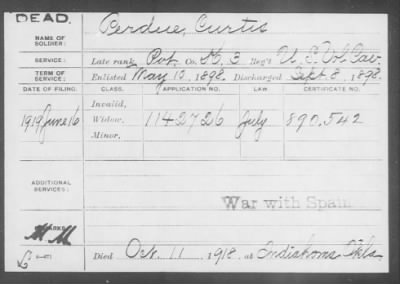 DEAD.
NAME OF SOLDIER: Perdue, Curtis
SERVICE: Late rank, Pvt. Co. K, 3 Reg't U. S. Vol Cav.
TERM OF SERVICE: Enlisted May 12, 1898. Discharged Sept 8, 1898
DATE OF FILING. CLASS. APPLICATION NO. LAW. CERTIFICATE NO.
Invalid,
1919 June 16 Widow, 1142726 July 890,542
Minor,
ADDITIONAL SERVICES:
War with Spain
M M
Died Oct. 11, 1918, at Indiahoma Okla